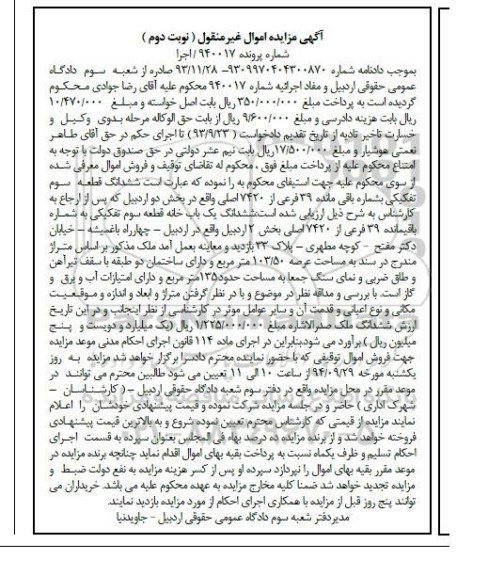 آگهی مزایده اموال غیرمنقول ( نوبت دوم )
شماره پرونده ۹۴۰۰۱۷ / اجرا
بموجب دادنامه شماره ۹۳۰۹۹۷۰۴۰۴۳۰۰۸۷۰- ۹۳/۱۱/۲۸ صادره از شعبه سوم دادگاه
عمومی حقوقی اردبیل و مفاد اجرائیه شماره ۹۴۰۰۱۷ محکوم علیه آقای رضا جوادی محکوم
گردیده است به پرداخت مبلغ ۳۵۰/۰۰۰/۰۰۰ ریال بابت اصل خواسته و مبلغ ۱۰/۴۷۰/۰۰۰
ریال بابت هزینه دادرسی و مبلغ ۹/۶۰۰/۰۰۰ ریال از بابت حق الوکاله مرحله بدوی وکیل و
خسارت تاخیر تادیه از تاریخ تقدیم دادخواست ( ۹۳/۹/۲۳ ) تا اجرای حکم در حق آقای طاهر
نعمتی هوشیار و مبلغ ۱۷/۵۰۰/۰۰۰ریال بابت نیم عشر دولتی در حق صندوق دولت با توجه به
امتناع محکوم علیه از پرداخت مبلغ فوق ، محکوم له تقاضای توقیف و فروش اموال معرفی شده
از سوی محکوم علیه جهت استیفای محکوم به را نموده که عبارت است ششدانگ قطعه سوم
تفکیکی بشماره باقی مانده ۳۹ فرعی از ۷۴۲۰اصلی واقع در بخش دو اردبیل که پس از ارجاع به
کارشناس به شرح ذیل ارزیابی شده است:ششدانگ یک باب خانه قطعه سوم تفکیکی به شماره
باقیمانده ۳۹ فرعی از ۷۴۲۰اصلی بخش ۲ اردبیل واقع در اردبیل – چهارراه باغمیشه – خیابان
دکتر مفتح – کوچه مطهری – پلاک ۳۳ بازدید و معاینه بعمل آمد ملک مذکور بر اساس متراژ
مندرج در سند به مساحت عرصه ۱۰۳/۵۰ متر مربع و دارای ساختمان دو طبقه با سقف تیرآهن
و طاق ضربی و نمای سنگ جمعا به مساحت حدود۱۳۵متر مربع و دارای امتیازات آب و برق و
گاز است. با بررسی و مداقه نظر در موضوع و با در نظر گرفتن متراژ و ابعاد و اندازه و موقعیت
مکانی و نوع اعیانی و قدمت آن و سایر عوامل موثر در کارشناسی از نظر اینجانب و در این تاریخ
ارزش ششدانگ ملک صدرالاشاره مبلغ ۱/۲۲۵/۰۰۰/۰۰۰ ریال (یک میلیارد و دویست و پنج
میلیون ریال ) برآورد می شودبنابراین در اجرای ماده ۱۱۴ قانون اجرای احکام مدنی موعد مزایده
جهت فروش اموال توقیفی که با حضور نماینده محترم دادسرا برگزار خواهد شد مزایده به روز
یکشنبه مورخه ۹۴/۰۹/۲۹ از ساعت ۱۰ الی ۱۱ تعیین می شود طالبین محترم می توانند در
موعد مقرر در محل مزایده واقع در دفتر سوم شعبه دادگاه حقوقی اردبیل – ( کارشناسان –
شهرک اداری ) حاضر و در جلسه مزایده شرکت نموده و قیمت پیشنهادی خودشان را اعلام
نمایند مزایده از قیمتی که کارشناس محترم تعیین نموده شروع و به بالاترین قیمت پیشنهادی
فروخته خواهد شد و از برنده مزایده ده درصد بهاء فی المجلس بعنوان سپرده به قسمت اجرای
احکام تسلیم و ظرف یکماه نسبت به پرداخت بقیه بهای اموال اقدام نماید چنانچه برنده مزایده در
موعد مقرر بقیه بهای اموال را نپردازد سپرده او پس از کسر هزینه مزایده به نفع دولت ضبط و
مزایده تجدید خواهد شد ضمنا کلیه مخارج مزایده به عهده محکوم علیه می باشد. خریداران می
توانند پنج روز قبل از مزایده با همکاری اجرای احکام از مورد مزایده بازدید نمایند.
مدیردفتر شعبه سوم دادگاه عمومی حقوقی اردبیل – جاویدنیا